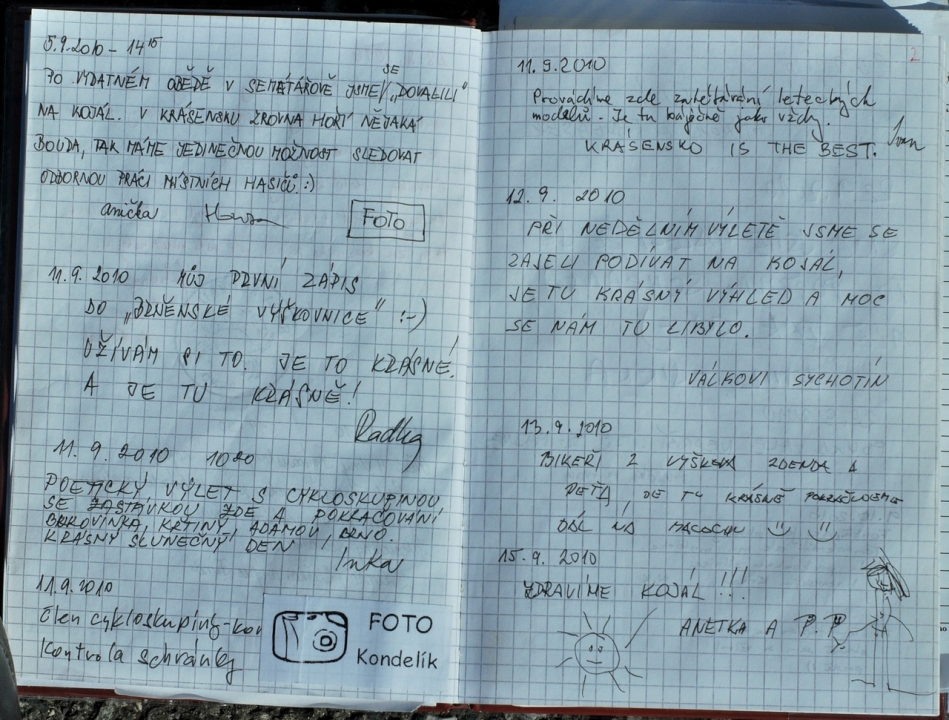 5.9.2010 - 14¹⁵
PO VYDATNÉM OBĚDĚ V SEMĚTÁŘOVĚ JSME SE „DOVALILI"
NA KOJÁL. V KRÁSENSKU ZROVNA HOŘÍ NĚJAKÁ
BOUDA, TAK MÁME JEDINEČNOU MOŽNOST SLEDOVAT
ODBORNOU PRÁCI MÍSTNÍCH HASIČŮ. :)
Anička
FOTO
11.9.2010 MŮJ PRVNÍ ZÁPIS
DO „BRNĚNSKÉ VÝŠKOVNICE" :-)
UŽÍVÁM SI TO. JE TO KRÁSNÉ!
A JE TU KRÁSNĚ!
Radka
11.9.2010 10²⁰
POETICKÝ VÝLET S CYKLOSKUPINOU
SE ZASTÁVKOU ZDE A POKRAČOVÁNÍ
BUKOVINKA, KŘTINY, ADAMOV, BRNO.
KRÁSNÝ SLUNEČNÝ DEN
Inka
11.9.2010
Člen cykloskupiny-kon
Kontrola schránky
FOTO
Kondelík
2
11.9.2010
Provádíme zde zalétávání leteckých
modelů. Je tu báječně jako vždy.
KRÁSENSKO IS THE BEST.
Ivan
12.9. 2010
PŘI NEDĚLNÍM VÝLETĚ JSME SE
ZAJELI PODÍVAT NA KOJÁL,
JE TU KRÁSNÝ VÝHLED A MOC
SE NÁM TU LÍBILO.
VALKOVI SYCHOTÍN
13.9.2010
BIKEŘI Z VYŠKOVA ZDENDA A
PEŤA, JE TU KRÁSNĚ POKRAČUJEME
DÁL NA MACOCHU
15.9.2010
ZDRAVÍME KOJÁL !!!
ANETKA A P.P